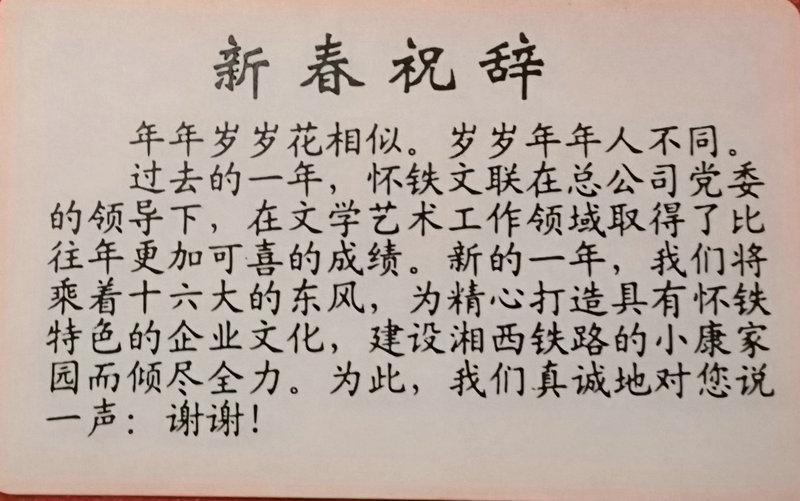 新春祝辞
年年岁岁花相似。岁岁年年人不同。
过去的一年，怀铁文联在总公司党委
的领导下，在文学艺术工作领域取得了比
往年更加可喜的成绩。新的一年，我们将
乘着十六大的东风，为精心打造具有怀铁
特色的企业文化，建设湘西铁路的小康家
园而倾尽全力。为此，我们真诚地对您说
一声：谢谢！